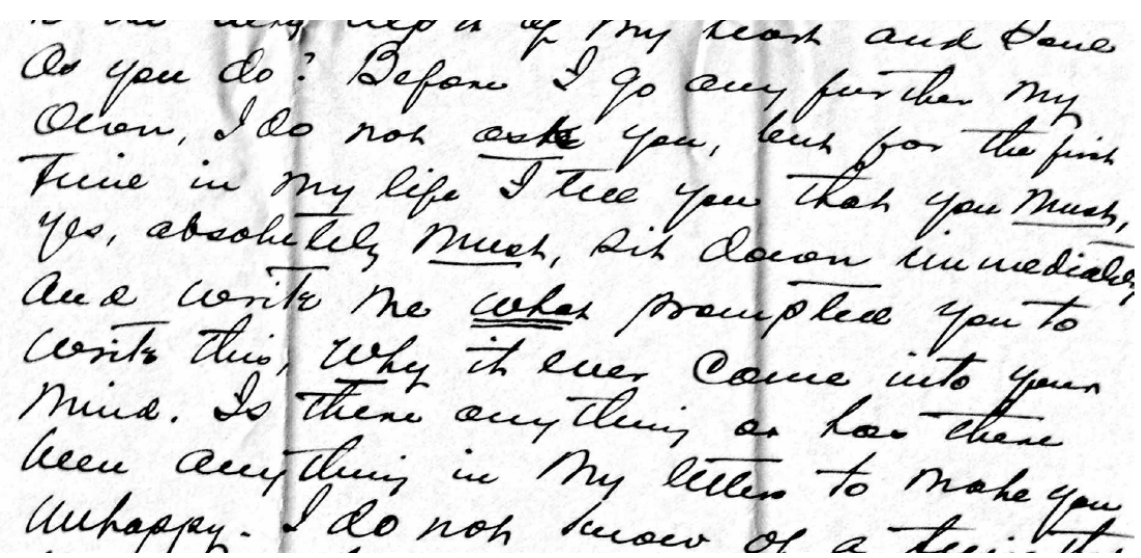 of my heart and love
as you do? Before I go any further my
own, I do not ask you, but for the first
time in my life I tell you that you must,
yes, absolutely must, sit down immediately
and write me what prompted you to
write this, why it ever came into your
mind. Is there anything or has there
been anything in my letters to make you
unhappy. I do not know of a